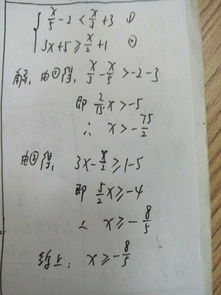 x/5 - 2 < x/3 + 3 ①
3x + 5 ≥ x/2 + 1 ②
解: 由①得, x/3 - x/5 > -2 - 3
即 2/15 x > -5
∴ x > - 75/2
由②得, 3x - x/2 ≥ 1 - 5
即 5/2 x ≥ -4
∴ x ≥ - 8/5
综上: x ≥ - 8/5